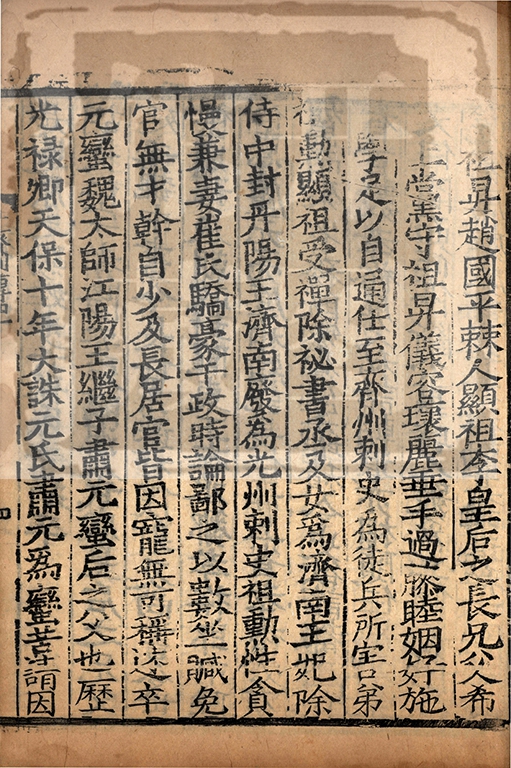 祖昇趙國平棘人顯祖李皇后之長兄父希
上黨守祖昇儀容瓌麗垂手過膝睦姻好施
學足以自通仕至齊州刺史為徒兵所害弟
祖勳顯祖受禪除祕書丞及女為濟南王妃除
侍中封丹陽王濟南廢為光州刺史祖勳性貪
慢兼妻崔氏驕豪干政時論鄙之以數坐贓免
官無才幹自少及長居官皆因寵無可稱述卒
元蠻魏太師江陽王繼子肅元蠻后之父也歷
光祿卿天保十年大誅元氏肅元為蠻苦請因